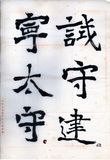 試守建
寧太守